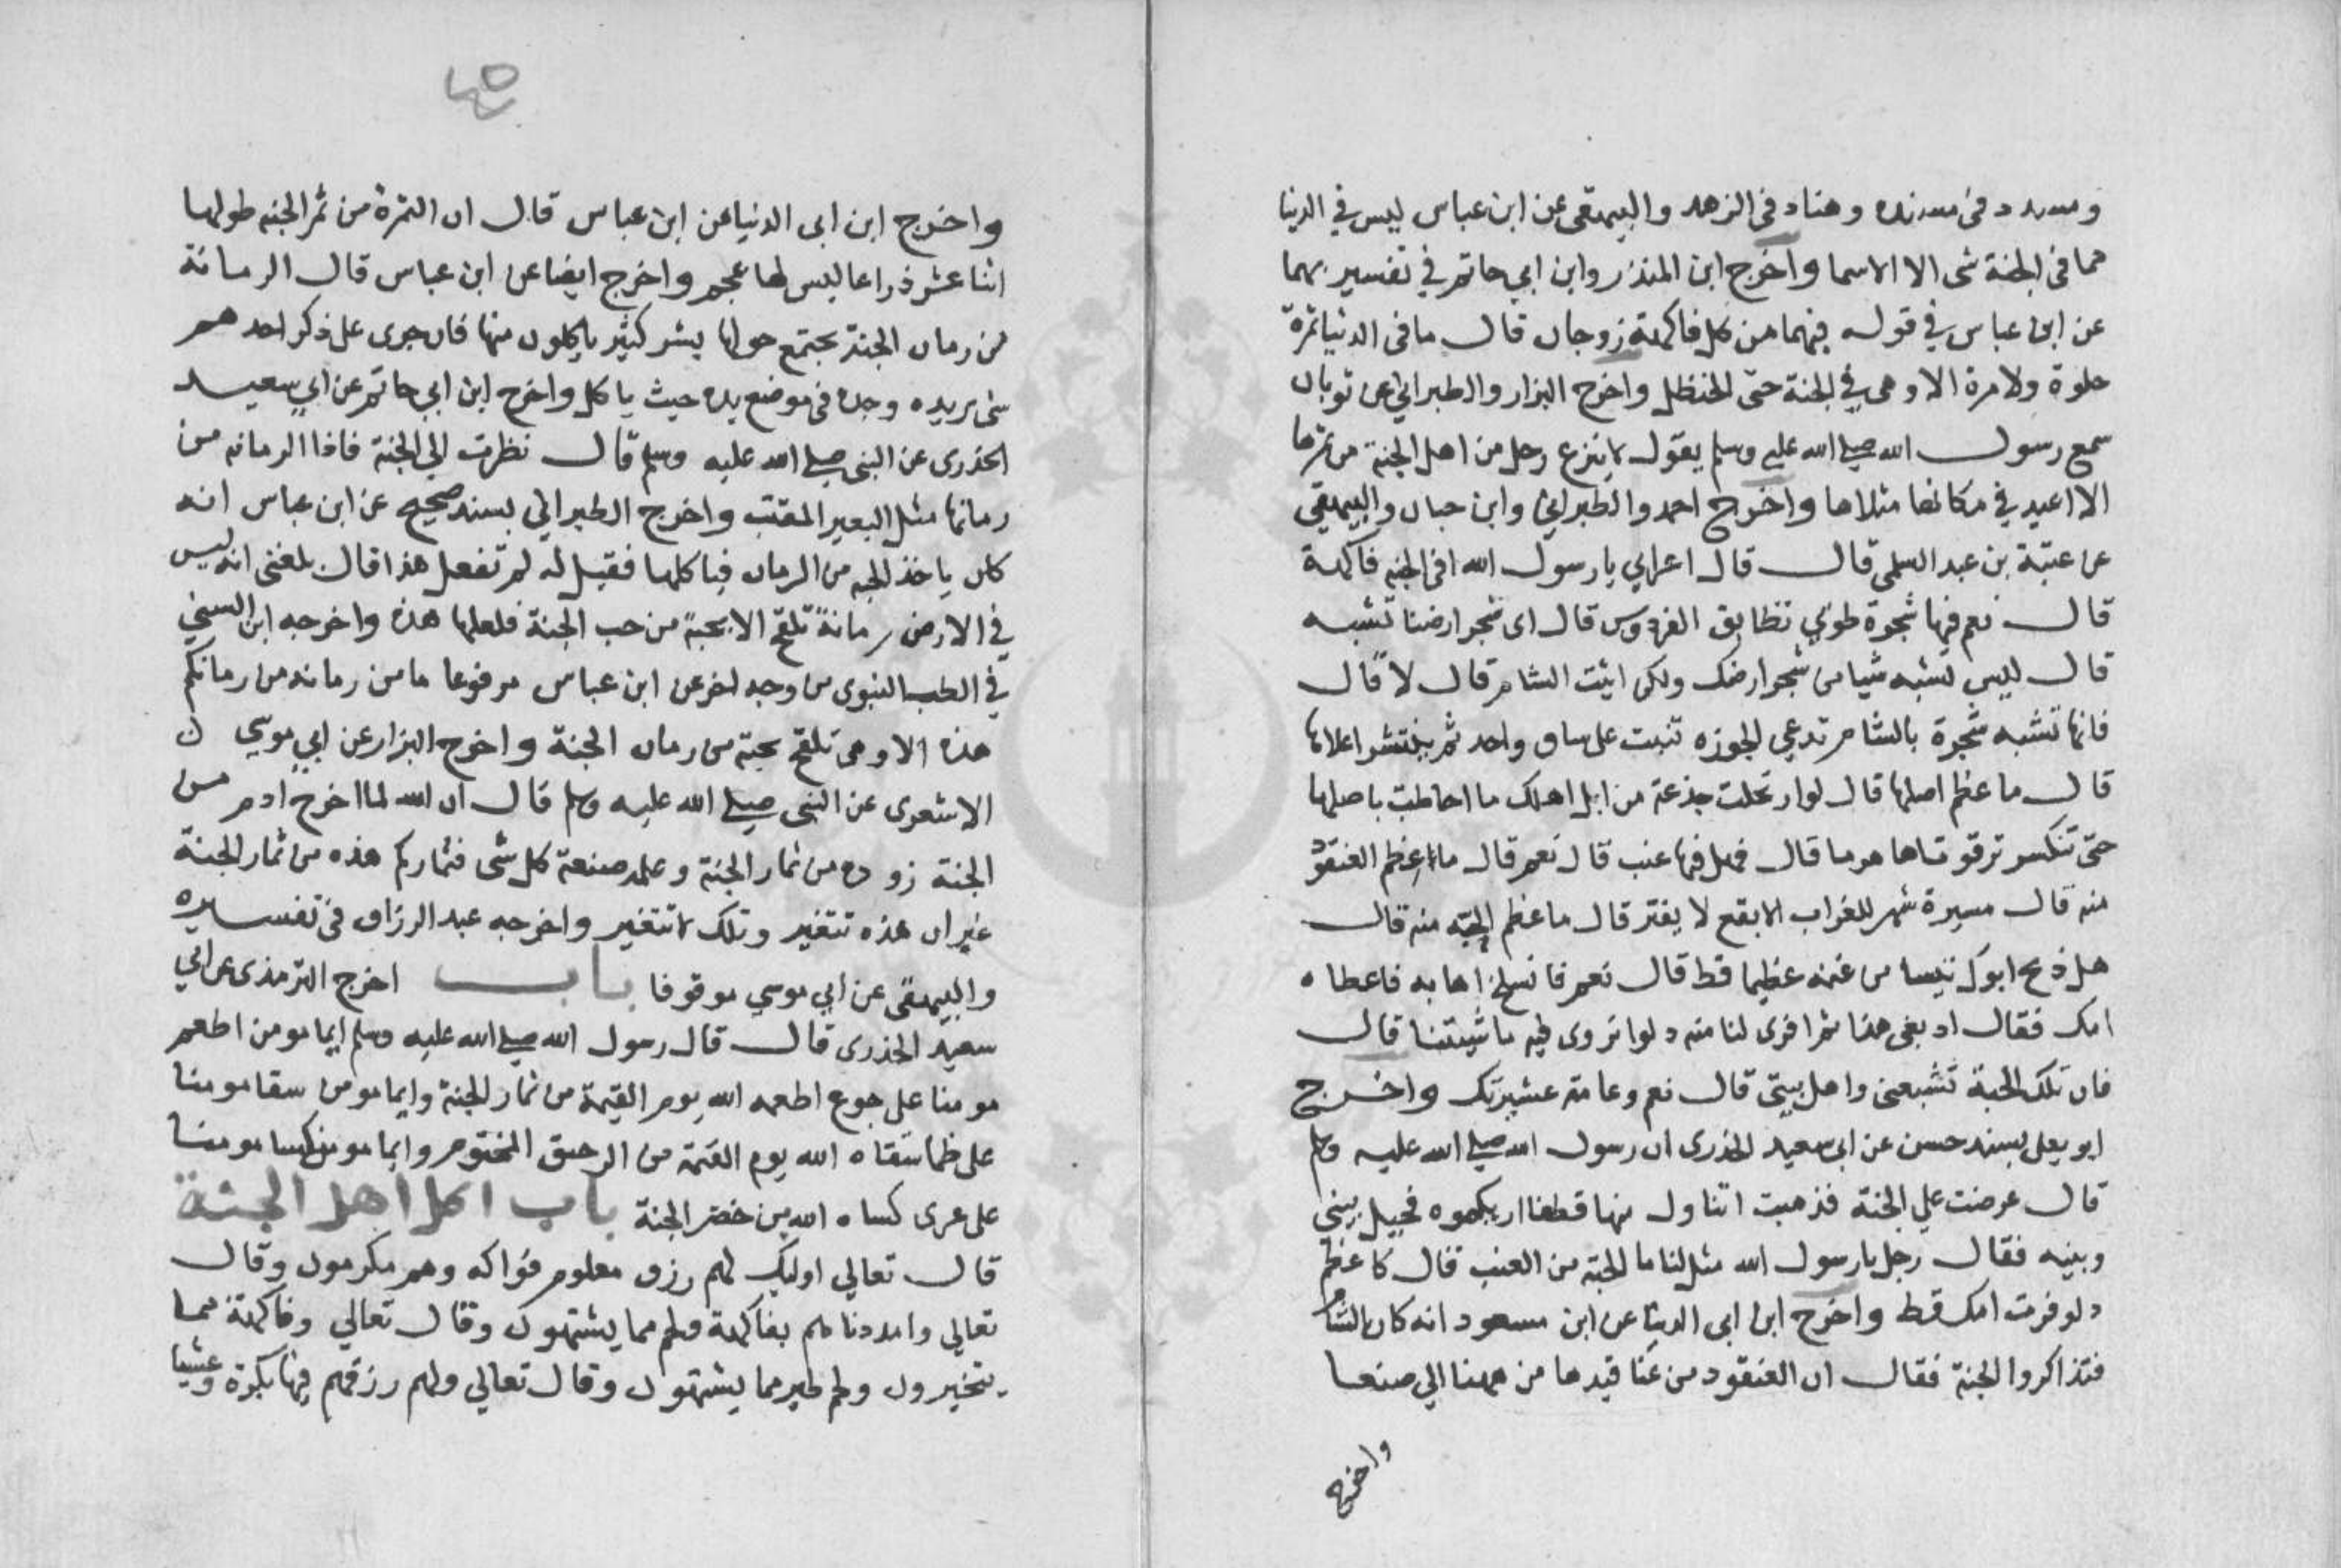 ومسدد في مسنده وهناد في الزهد والبيهقي عن ابن عباس ليس في الدنيا
مما في الجنة شي الا الاسما واخرج ابن المنذر وابن ابي حاتم في تفسيريهما
عن ابن عباس في قوله فيهما من كل فاكهة زوجان قال ما في الدنيا ثمرة
حلوة ولا مرة الا وهي في الجنة حتى الحنظل واخرج البزار والطبراني عن ثوبان
سمع رسول الله صلى الله عليه وسلم يقول لا ينزع رجل من اهل الجنة من ثمرها
الا اعيد في مكانها مثلاها واخرج احمد والطبراني وابن حبان والبيهقي
عن عتبة بن عبد السلمي قال قال اعرابي يا رسول الله افي الجنه فاكهة
قال نعم فيها شجرة طوبي تطابق الفردوس قال اى شجر ارضنا تشبه
قال ليس تشبه شيا من شجر ارضك ولكن ائيت الشام قال لا قال
فانها تشبه شجرة بالشام تدعي الجوزه تنبت على ساق واحد ثم ينتشر اعلاها
قال ما عظم اصلها قال لو ارتحلت جذعة من ابل اهلك ما احاطت باصلها
حتى تنكسر ترقوتاها هرما قال فهل فيها عنب قال نعم قال ما عظم العنقود
منه قال مسيرة شهر للغراب الابقع لا يفتر قال ما عظم الحبه منه قال
هل ذبح ابوك تيسا من غنمه عظيما قط قال نعم فانسلخ اهابه فاعطاه
امك فقال ادبغي هذا ثم افرى لنا منه دلوا نروى به ماشيتنا قال
فان تلك الحبة تشبعني واهل بيتي قال نعم وعامة عشيرتك واخرج
ابو يعلى بسند حسن عن ابي سعيد الخدرى ان رسول الله صلى الله عليه وسلم
قال عرضت علي الجنة فذهبت اتناول منها قطفا اريكموه فحيل بيني
وبينه فقال رجل يا رسول الله مثل لنا ما الحبة من العنب قال كاعظم
دلو فرت امك قط واخرج ابن ابي الدنيا عن ابن مسعود انه كان بالشام
فتذاكروا الجنة فقال ان العنقود من عناقيدها من ههنا الي صنعا
واخرج
واخرج ابن ابى الدنيا عن ابن عباس قال ان الثمرة من ثمر الجنه طولها
اثنا عشر ذراعا ليس لها عجم واخرج ايضا عن ابن عباس قال الرمانة
من رمان الجنة يجتمع حولها بشر كثير ياكلون منها فان جرى على ذكر احدهم
شي يريده وجده في موضع يده حيث ياكل واخرج ابن ابي حاتم عن ابي سعيد
الخدرى عن النبى صلى الله عليه وسلم قال نظرت الي الجنة فاذا الرمانه من
رمانها مثل البعير المقتب واخرج الطبراني بسند صحيح عن ابن عباس انه
كان ياخذ الحبه من الرمان فياكلها فقيل له لم تفعل هذا قال بلغنى انه ليس
في الارض رمانة تلقح الا بحبة من حب الجنة فلعلها هذه واخرجه ابن السني
في الطب النبوى من وجه اخر عن ابن عباس مرفوعا ما من رمانه من رمانكم
هذه الا وهي تلقح بحبة من رمان الجنة واخرج البزار عن ابي موسي
الاشعرى عن النبى صلى الله عليه وسلم قال ان الله لما اخرج ادم من
الجنة زوده من ثمار الجنة وعلمه صنعة كل شى فثماركم هذه من ثمار الجنة
غير ان هذه تتغير وتلك لا تتغير واخرجه عبد الرزاق في تفسيره
والبيهقي عن ابي موسي موقوفا باب اخرج الترمذى عن ابي
سعيد الخدرى قال قال رسول الله صلى الله عليه وسلم ايما مومن اطعم
مومنا على جوع اطعمه الله يوم القيمة من ثمار الجنة وايما مومن سقا مومنا
على ظما سقاه الله يوم القيمة من الرحيق المختوم وايما مومن كسا مومنا
على عرى كساه الله من خضر الجنة باب اكل اهل الجنة
قال تعالي اوليك لهم رزق معلوم فواكه وهم مكرمون وقال
تعالي وامددناهم بفاكهة ولحم مما يشتهون وقال تعالي وفاكهة مما
يتخيرون ولحم طير مما يشتهون وقال تعالي ولهم رزقهم فيها بكرة وعشيا